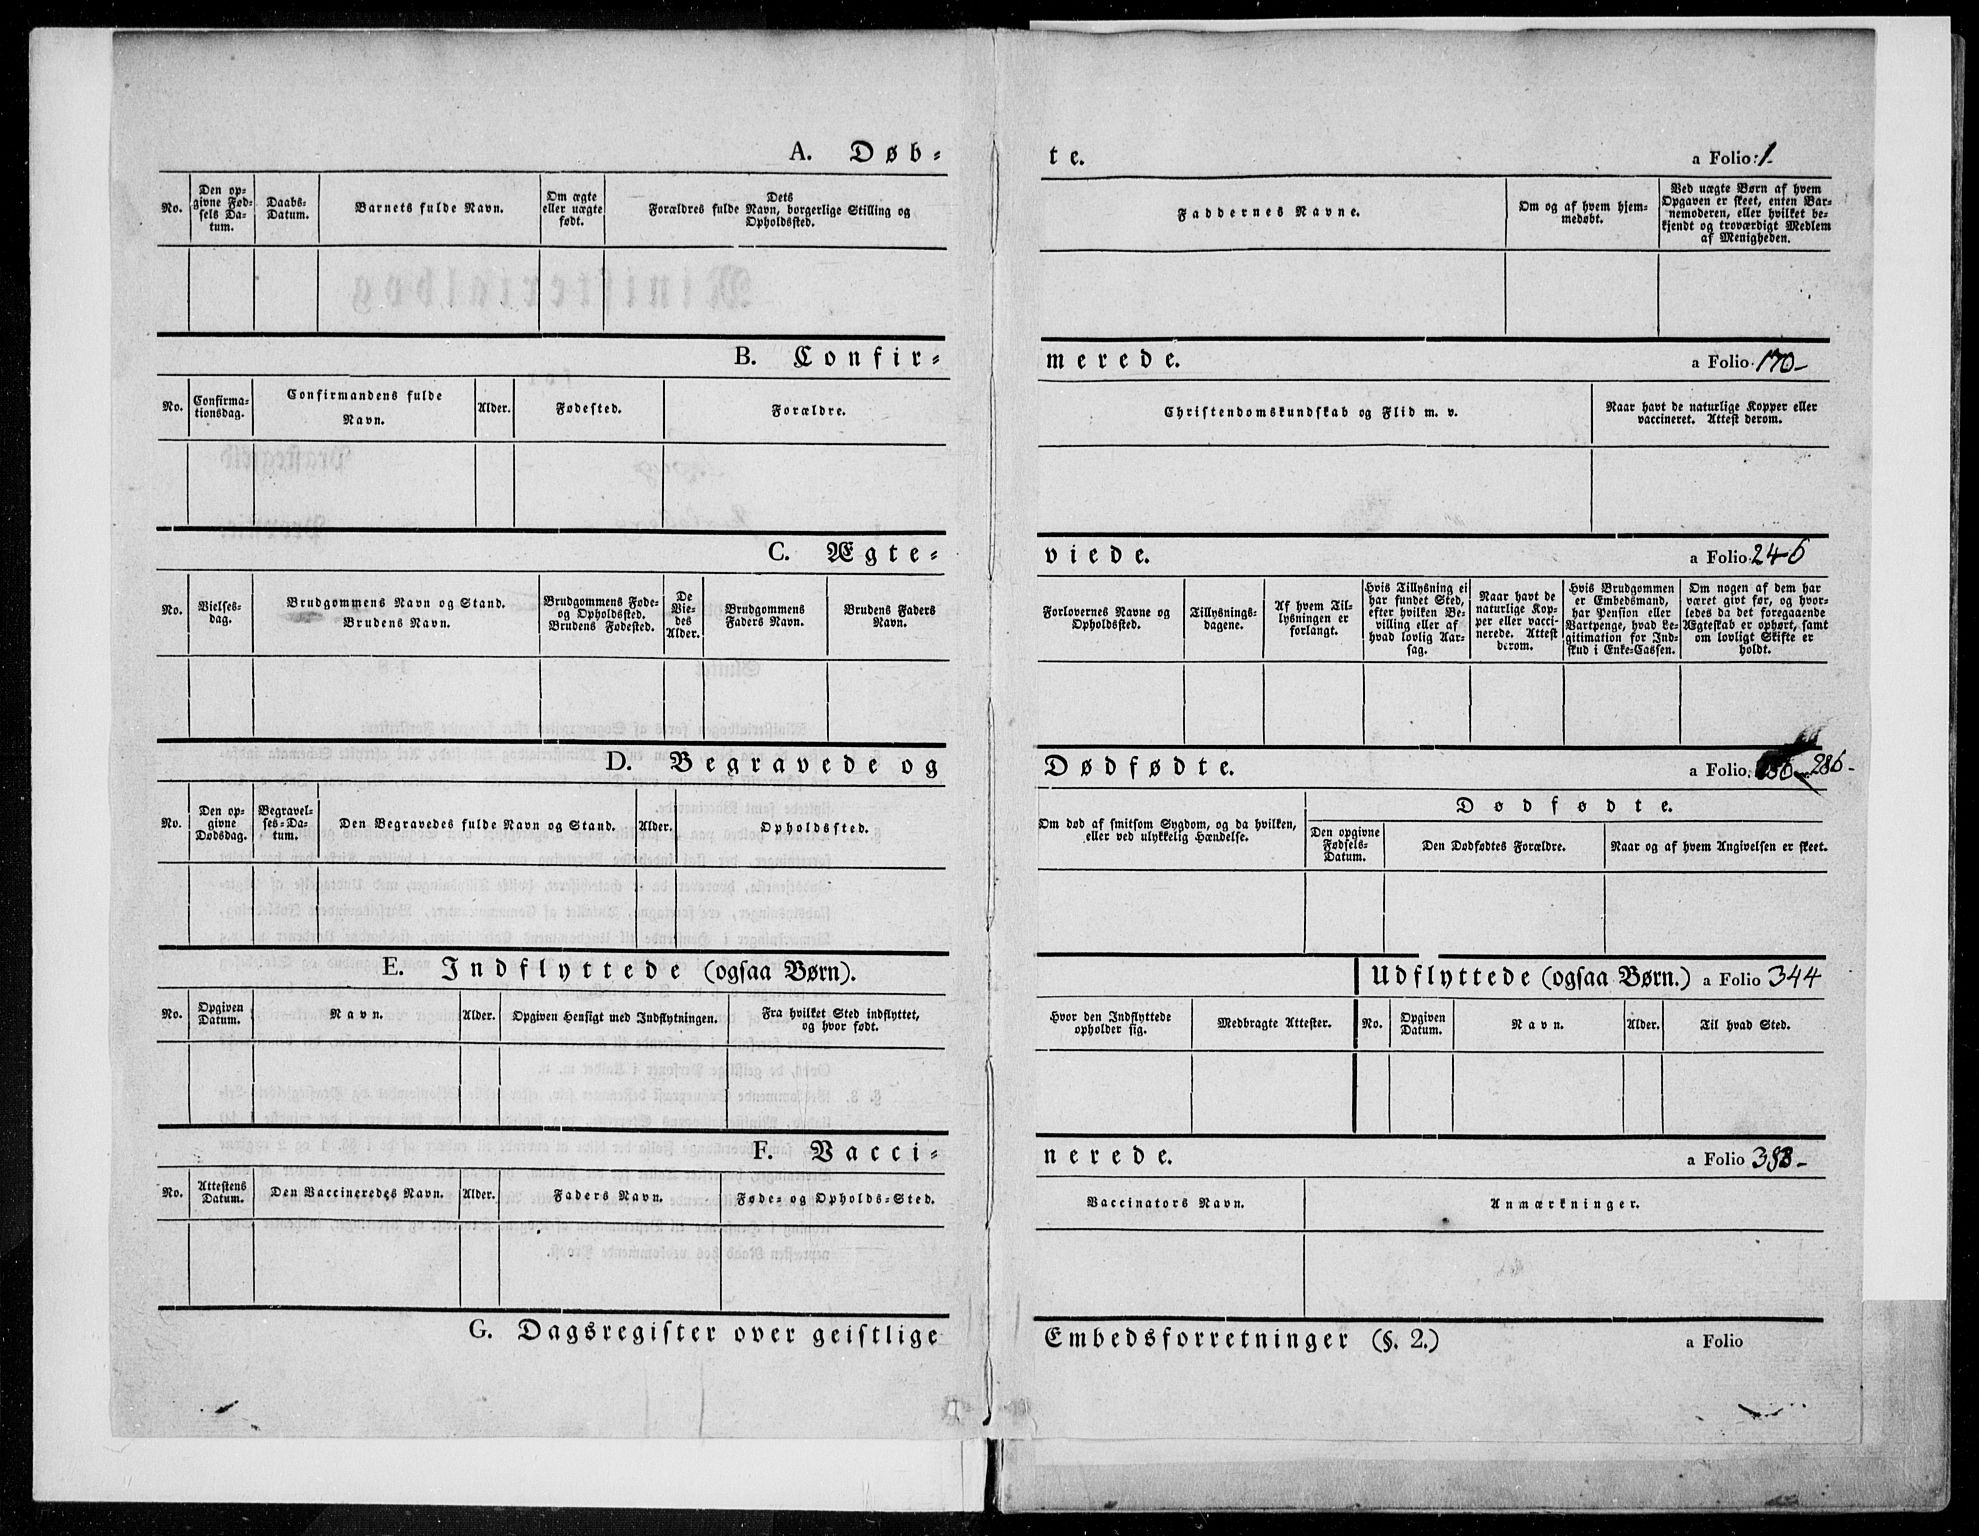 A. Døb-
te.
a Folio 1-
No.
Den op-
givne Fød-
sels Da-
tum.
Daabs-
Datum.
Barnets fulde Navn.
Om ægte
eller uægte
født.
Dets
Forældres fulde Navn, borgerlige Stilling og
Opholdssted.
Faddernes Navne.
Om og af hvem hjem-
medøbt.
Ved uægte Børn af hvem
Opgaven er skeet, enten Bar-
nemoderen, eller hvilket be-
kjendt og troværdigt Medlem
af Menigheden.
B. Confir-
merede.
a Folio 170-
No.
Confirma-
tionsdag.
Confirmandens fulde
Navn.
Alder.
Fødested.
Forældre.
Christendomskundskab og Flid m. v.
Naar havt de naturlige Kopper eller
vaccineret. Attest derom.
C. Ægte-
viede.
a Folio 246
No.
Vielses-
dag.
Brudgommens Navn og Stand.
Brudens Navn.
Brudgommens Føde-
og Opholdssted.
Brudens Fødested.
De
Vie-
des
Alder.
Brudgommens
Faders Navn.
Brudens Faders
Navn.
Forlovernes Navne og
Opholdssted.
Tillysnings-
dagene.
Af hvem Til-
lysningen er
forlangt.
Hvis Tillysning ei
har fundet Sted,
efter hvilken Be-
villing eller af
hvad lovlig Aar-
sag.
Naar havt de
naturlige Kop-
per eller vacci-
nerede. Attest
derom.
Hvis Brudgommen
er Embedsmand,
har Pension eller
Vartpenge, hvad Le-
gitimation for Ind-
skud i Enke-Cassen.
Om nogen af dem har
været givt før, og hvor-
ledes da det foregaaende
Ægteskab er ophørt, samt
om lovligt Skifte er
holdt.
D. Begravede og
Dødfødte.
a Folio 286-
No.
Den op-
givne
Dødsdag.
Begravel-
ses-Da-
tum.
Den Begravedes fulde Navn og Stand.
Alder.
Opholdssted.
Om død af smitsom Sygdom, og da hvilken,
eller ved ulykkelig Hændelse.
Dødfødte.
Den opgivne
Fødsels-
Datum.
Den Dødfødtes Forældre.
Naar og af hvem Angivelsen er skeet.
E. Indflyttede (ogsaa Børn).
Udflyttede (ogsaa Børn.) a Folio 344
No.
Opgiven
Datum.
Navn.
Alder.
Opgiven Hensigt med Indflytningen.
Fra hvilket Sted indflyttet,
og hvor født.
Hvor den Indflyttede
opholder sig.
Medbragte Attester.
No.
Opgiven
Datum.
Navn.
Alder.
Til hvad Sted.
F. Vacci-
nerede.
a Folio 383-
No.
Attestens
Datum.
Den Vaccineredes Navn.
Alder.
Faders Navn.
Føde- og Opholds-Sted.
Vaccinators Navn.
Anmærkninger.
G. Dagsregister over geistlige
Embedsforretninger (§. 2.)
a Folio